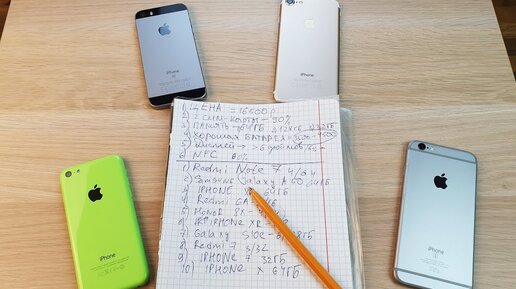 iPhone
iPhone
1) ЦЕНА = 16500р
2) 2 СИМ-КАРТЫ - 90%
3) ПАМЯТЬ - 64ГБ
4) ХОРОШАЯ БАТАРЕЯ
5) ДИСПЛЕЙ > 6 дюймов
6 NFC 80%
1) Redmi Note 7 4/64
2) Samsung Galaxy A 50
3) IPHONE 64ГБ
4) Redmi
5) HONOR 8X
6) IPHONE XR
7) Galaxy S10e
8) Redmi 7 3/32
9) IPHONE 7 32ГБ
10) IPHONE X 64ГБ
iPhone
iPhone